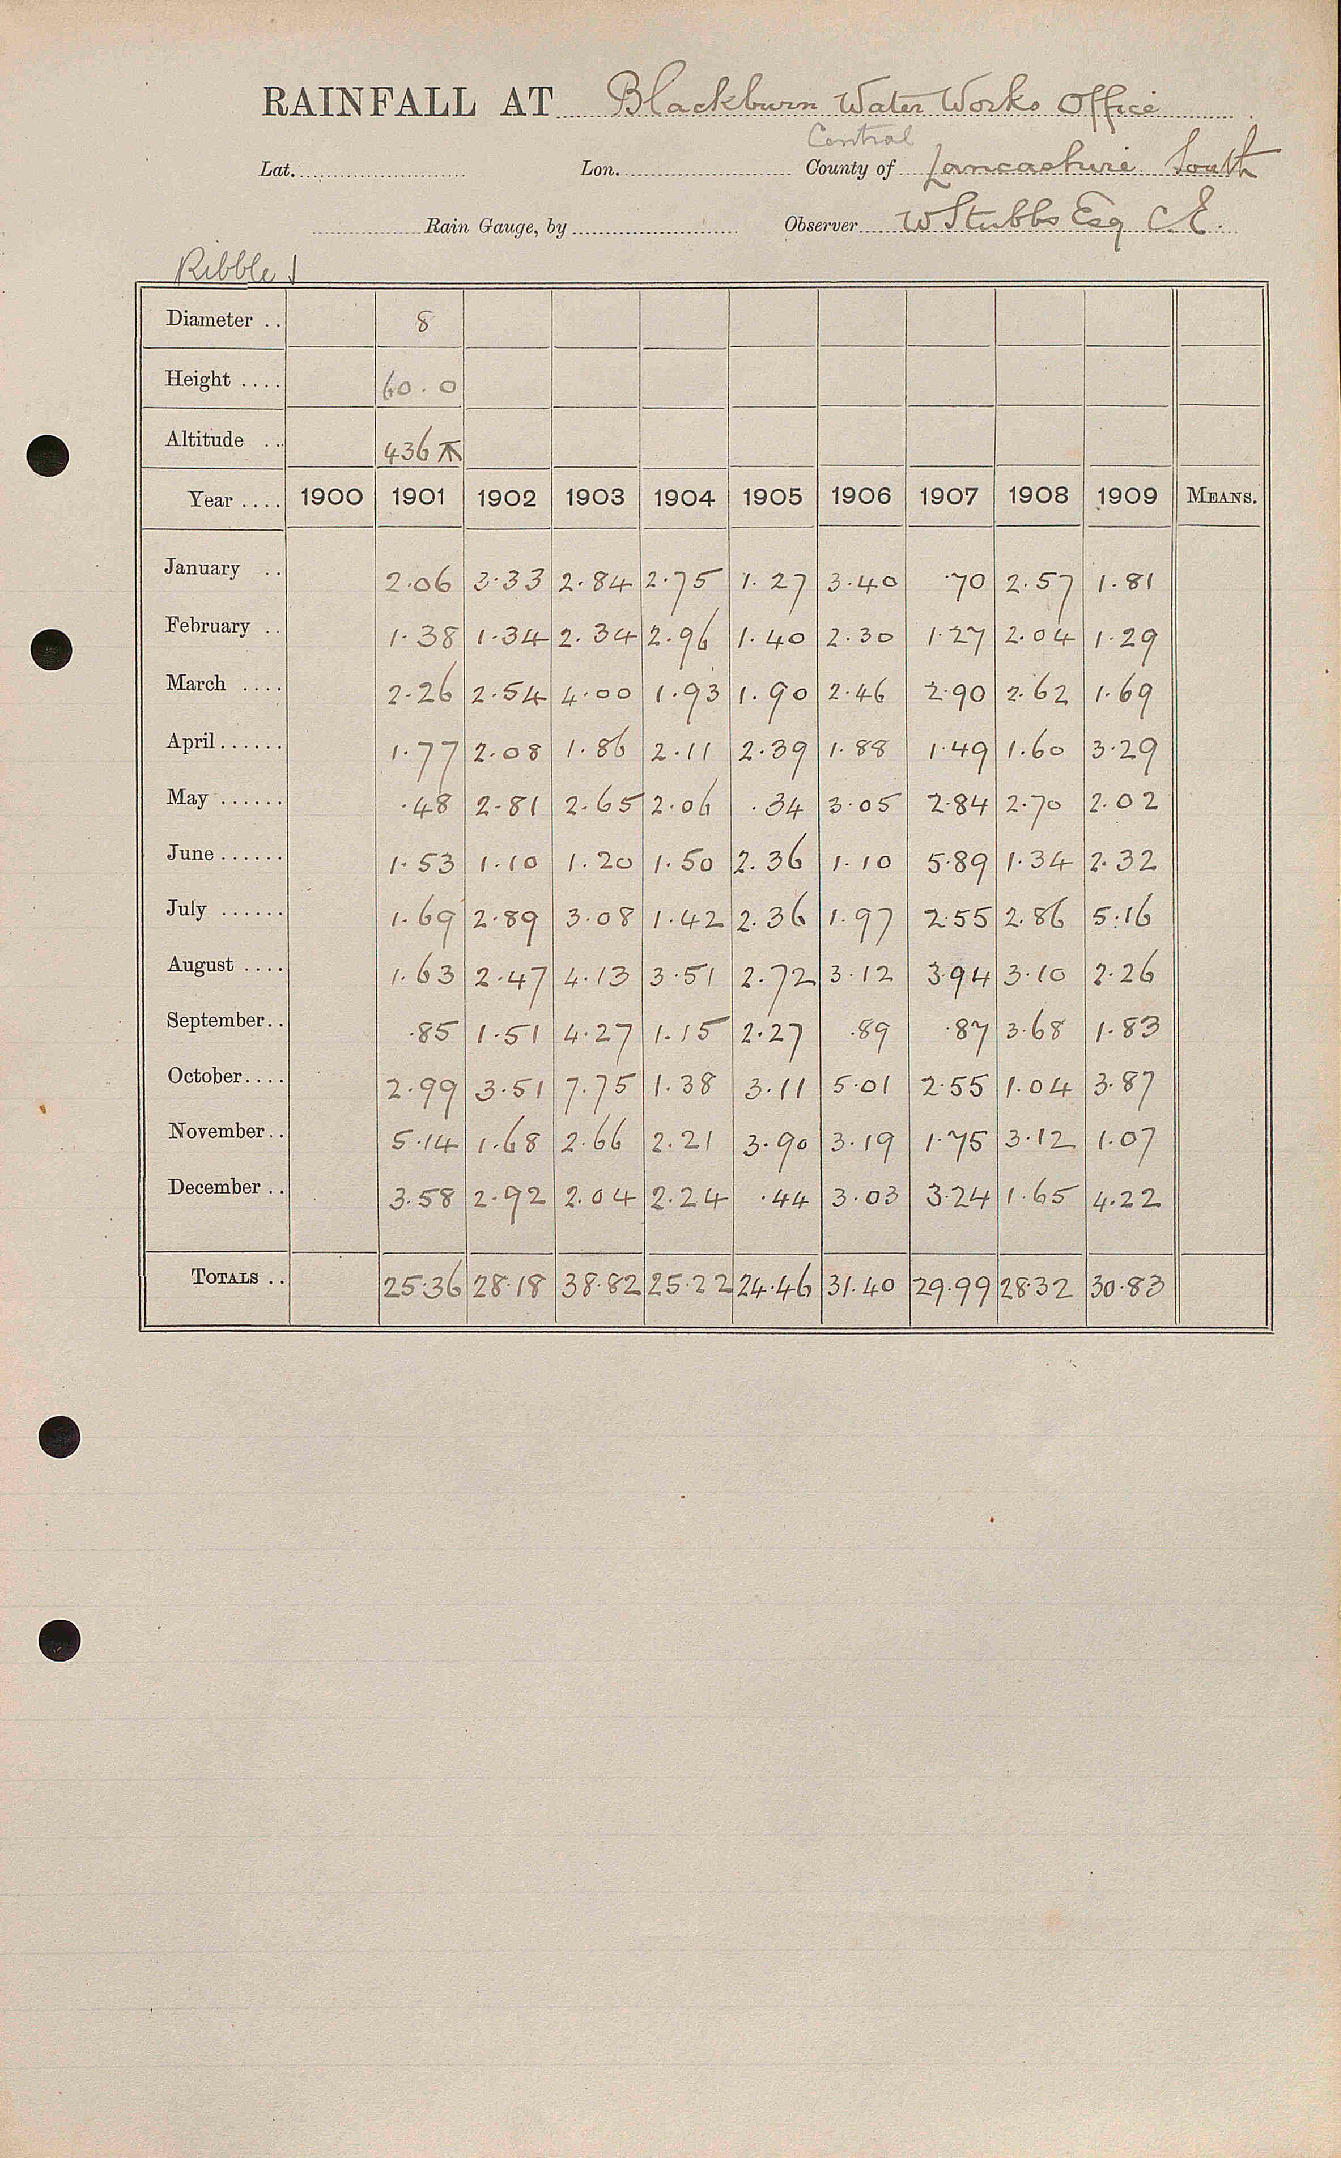 RAINFALL AT Blackburn Water Works Office
Central
Lat. Lon. County of Lancashire South
Rain Gauge, by Observer W Stubbs Esq C.E.
Ribble
Diameter .. 8
Height .... 60.0
Altitude ... 436
Year .... 1900 1901 1902 1903 1904 1905 1906 1907 1908 1909 MEANS.
January .. 2.06 3.33 2.84 2.75 1.27 3.40 .70 2.57 1.81
February .. 1.38 1.34 2.34 2.96 1.40 2.30 1.27 2.04 1.29
March .... 2.26 2.54 4.00 1.93 1.90 2.46 2.90 2.62 1.69
April...... 1.77 2.08 1.86 2.11 2.39 1.88 1.49 1.60 3.29
May ...... .48 2.81 2.65 2.06 .34 3.05 2.84 2.70 2.02
June...... 1.53 1.10 1.20 1.50 2.36 1.10 5.89 1.34 2.32
July ...... 1.69 2.89 3.08 1.42 2.36 1.97 2.55 2.86 5.16
August .... 1.63 2.47 4.13 3.51 2.72 3.12 3.94 3.10 2.26
September.. .85 1.51 4.27 1.15 2.27 .89 .87 3.68 1.83
October.... 2.99 3.51 7.75 1.38 3.11 5.01 2.55 1.04 3.87
November.. 5.14 1.68 2.66 2.21 3.90 3.19 1.75 3.12 1.07
December .. 3.58 2.92 2.04 2.24 .44 3.03 3.24 1.65 4.22
TOTALS .. 25.36 28.18 38.82 25.22 24.46 31.40 29.99 28.32 30.83